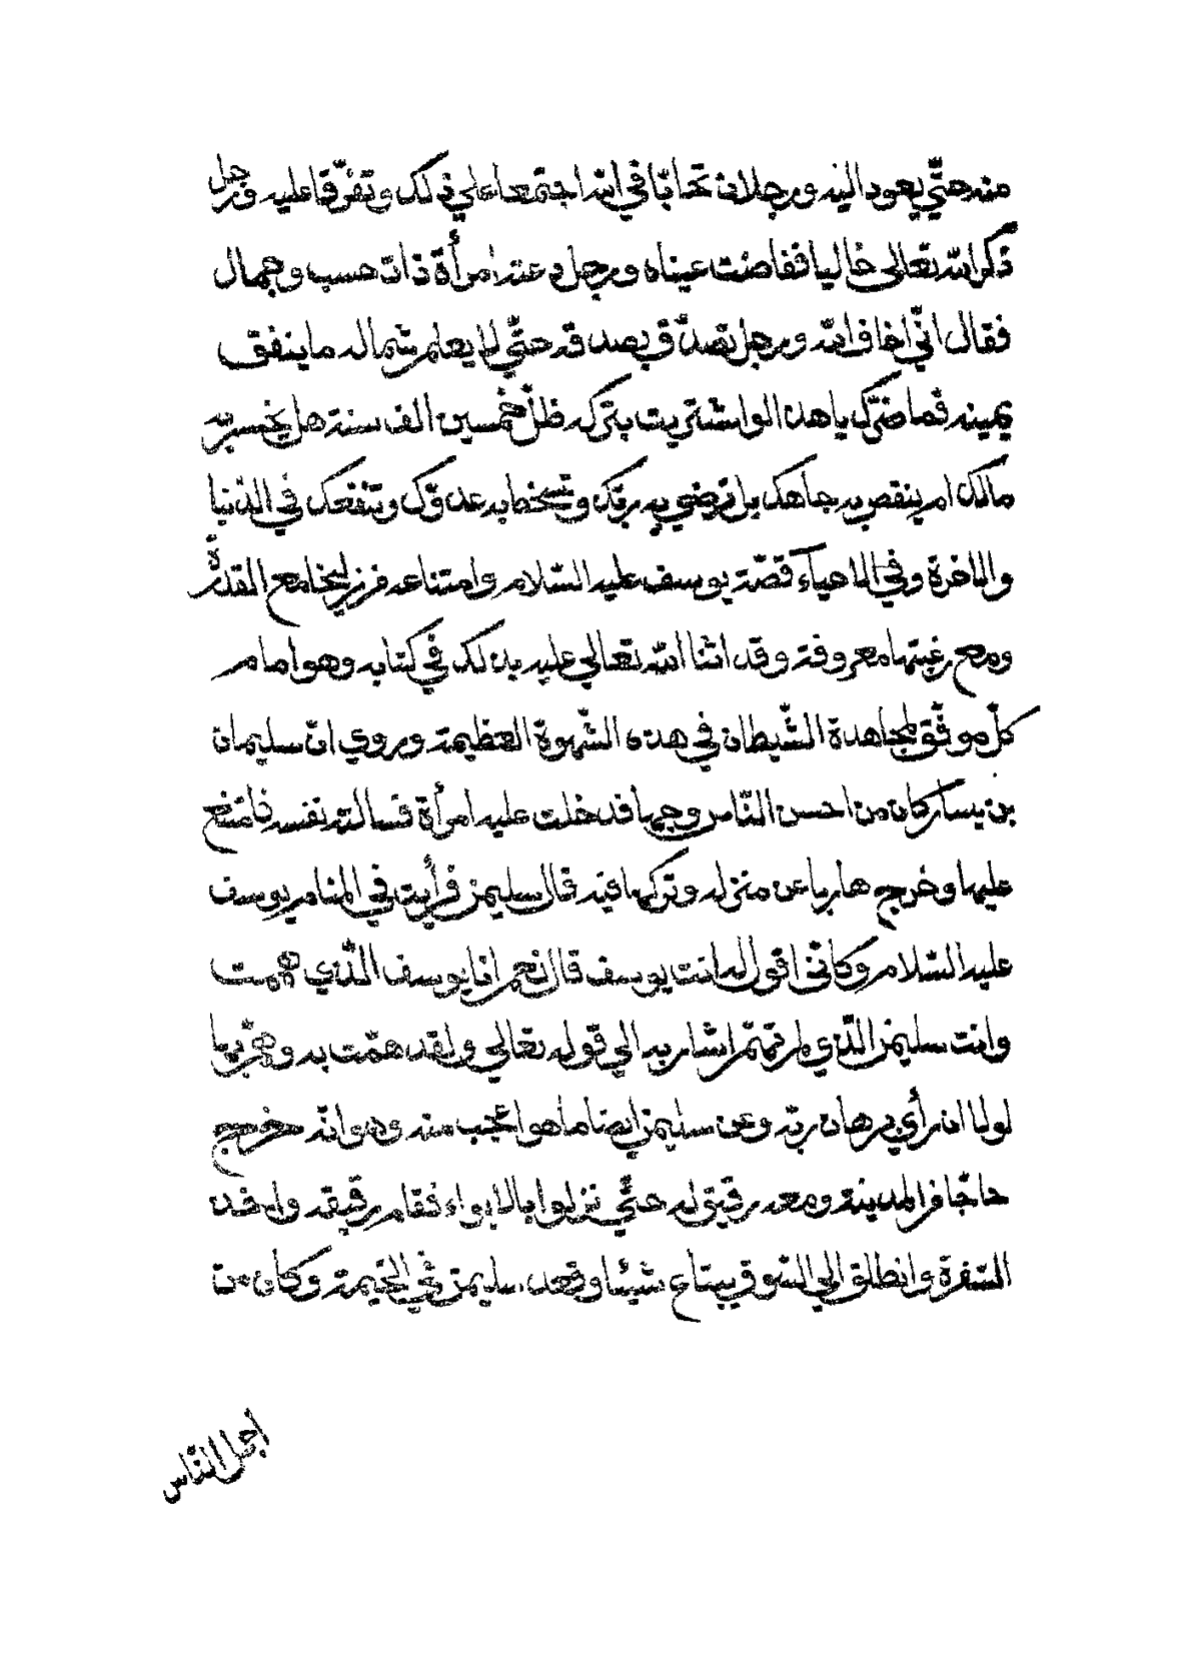 منه حتّي يعود اليه ورجلان تحابّا في الله اجتمعا علي ذلك وتفرّقا عليه ورجل
ذكر الله تعالي خاليا ففاضت عيناه ورجل دعته امرأة ذات حسب وجمال
فقال انّي اخاف الله ورجل تصدّق بصدقة حتّي لا يعلم شماله ما ينفق
يمينه فما ضرّك يا هذا لو اشتريت بتركه ظلّ خمسين الف سنة هل يخسر به
مالك ام ينقص به جاهك بل ترضي به ربّك وتسخط به عدوّك وتنفعك في الدّنيا
والاخرة وفي الاحياء قصّة يوسف عليه السّلام وامتناعه من زليخا مع القدرة
ومع رغبتها معروفة وقد اثنا الله تعالي عليه بذلك في كتابه وهو امام
كلّ موفّق لمجاهدة الشّيطان في هذه الشّهوة العظيمة وروي انّ سليمان
بن يسار كان من احسن النّاس وجها فدخلت عليه امرأة فسالته نفسه فامتنع
عليها وخرج هاربا عن منزله وتركها فيه قال سليمن فرأيت في المنام يوسف
عليه السّلام وكانّي اقول له انت يوسف قال نعم انا يوسف الّذي هممت
وانت سليمن الّذي لم تهتمّ اشار به الي قوله تعالي ولقد همّت به وهمّ بها
لولا ان رأي برهان ربّه وعن سليمن ايضا ما هو اعجب منه وهو انّه خرج
حاجّا من المدينة ومعه رفيق له حتّي نزلوا بالابواء فقام رفيقه واخذ
السّفرة وانطلق الي السّوق يبتاع شيئا وقعد سليمن في الخيمة وكان من
اجمل النّاس